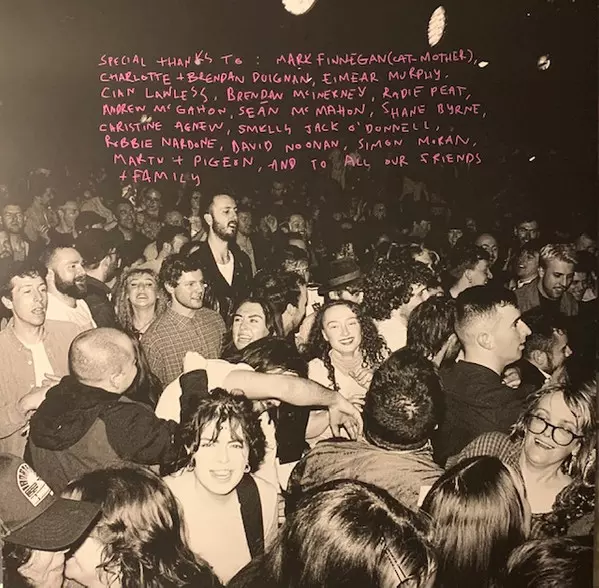 SPECIAL THANKS TO : MARK FINNEGAN (CAT-MOTHER),
CHARLOTTE + BRENDAN DUIGNAN, EIMEAR MURPHY.
CIAN LAWLESS, BRENDAN MCINERNEY, RADIE PEAT,
ANDREW MCGAHON, SEÁN MCMAHON, SHANE BYRNE,
CHRISTINE AGNEW, SMELLY JACK O'DONNELL,
ROBBIE NARDONE, DAVID NOONAN, SIMON MORAN,
MARTU + PIGEON, AND TO ALL OUR FRIENDS
+ FAMILY